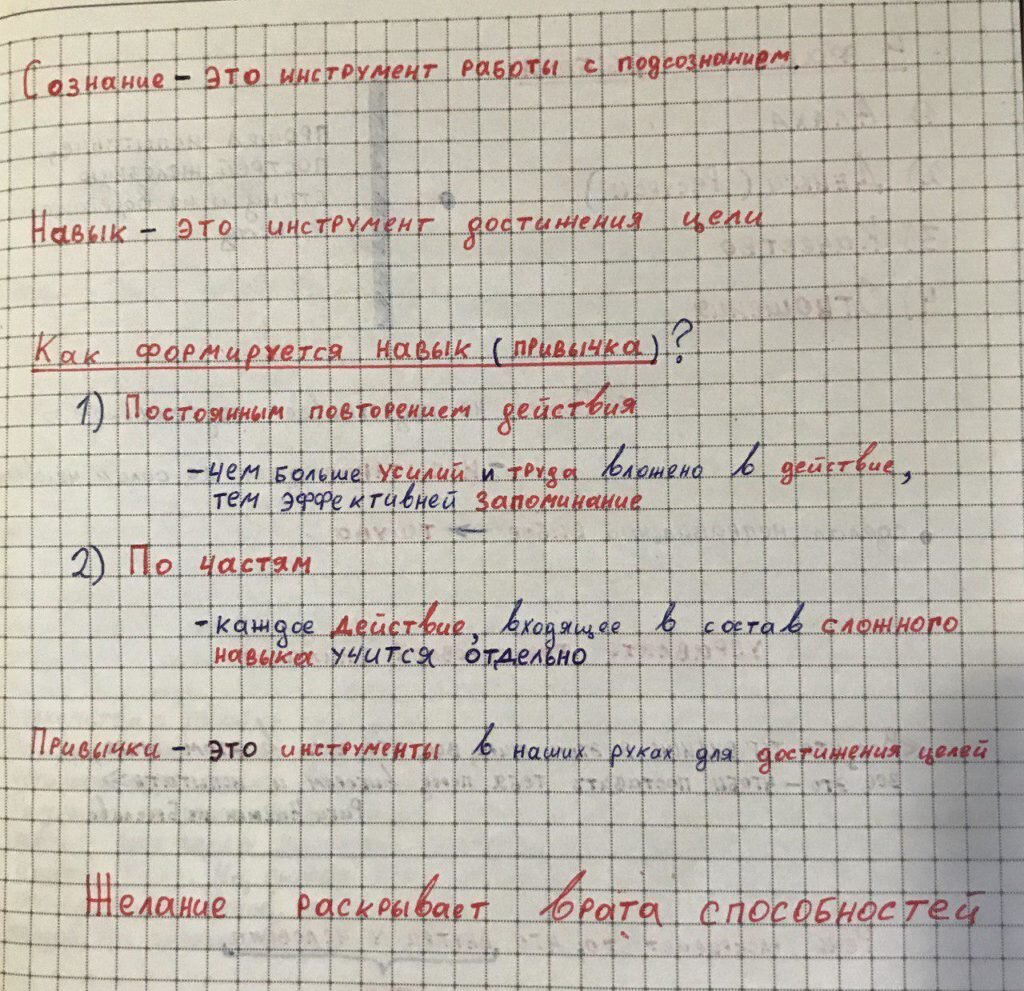 Сознание - это инструмент работы с подсознанием.
Навык - это инструмент достижения цели
Как формируется навык (привычка)?
1) Постоянным повторением действия
- чем больше усилий и труда вложено в действие,
тем эффективней запоминание
2) По частям
- каждое действие, входящее в состав сложного
навыка учится отдельно
Привычка - это инструменты в наших руках для достижения целей
Желание раскрывает врата способностей